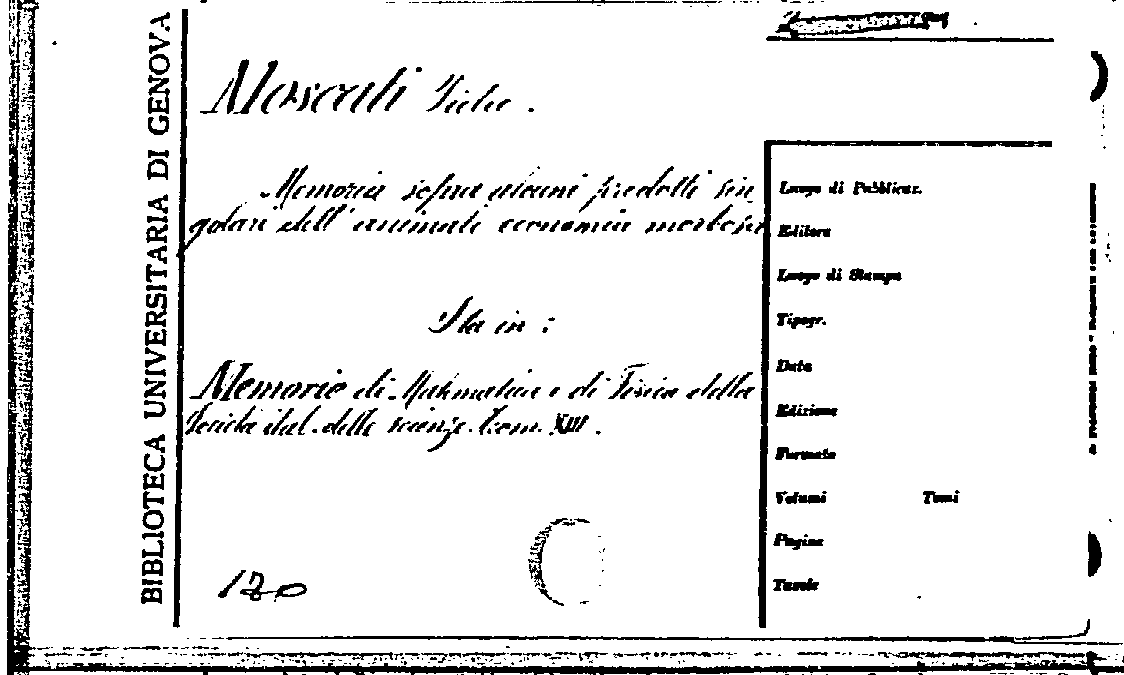 BIBLIOTECA UNIVERSITARIA DI GENOVA
Moscati Pietro.
Memoria sopra alcuni prodotti sin
golari dell' animale economia morbosa
Sta in :
Memorie di Matematica e di Fisica della
Società ital. delle scienze. Tom. XIII.
120
Luogo di Pubblicaz.
Editore
Luogo di Stampa
Tipogr.
Data
Edizione
Formato
Volumi Tomi
Pagine
Tavole